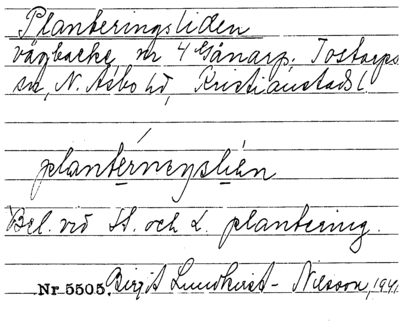 Planteringsliden
vägbacke nr 4 Gånarp. Tostarps
sn, N. Åsbo hd, Kristianstads l.
planterneŋsli̱ən
Bel. vid St. och L. plantering.
Nr 5505, Birgit Lundkvist-Nilsson, 1941